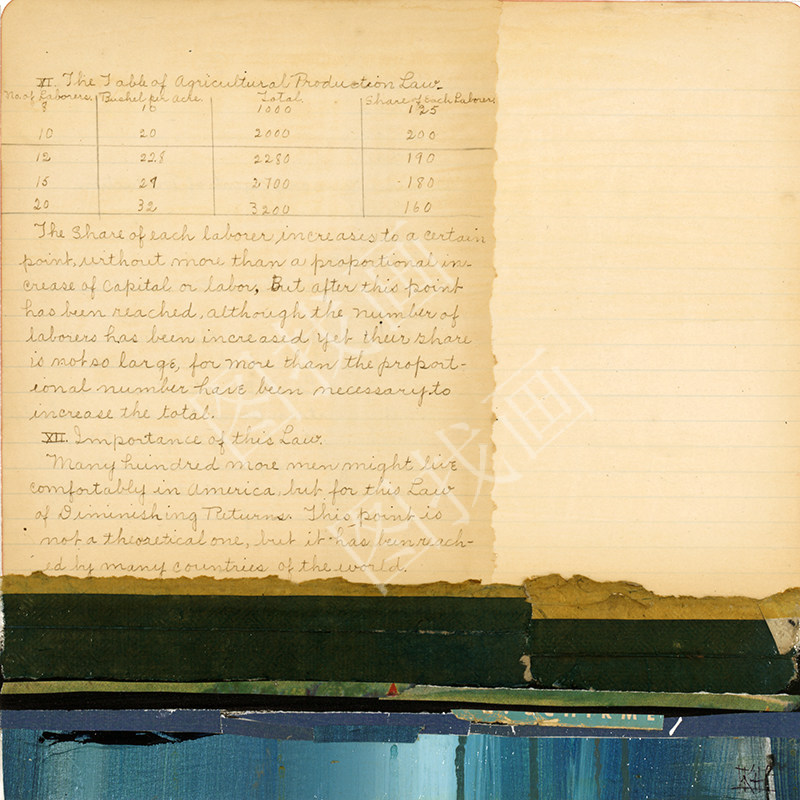 XI. The Table of Agricultural Production Law.
No. of Laborers Bushel per acre Total Share of each Laborer
8 10 1000 125
10 20 2000 200
12 22.8 2280 190
15 27 2700 180
20 32 3200 160
The Share of each laborer, increases to a certain
point, without more than a proportional in-
crease of Capital or labor, But after this point
has been reached, although the number of
laborers has been increased yet their share
is not so large, for more than the proport-
ional number have been necessary to
increase the total.
XII. Importance of this Law.
Many hundred more men might live
comfortably in America, but for this Law
of Diminishing Returns. This point is
not a theoretical one, but it has been reach-
ed by many countries of the world.
图找画
图找画